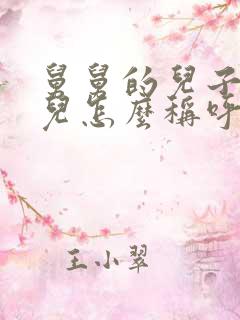 舅舅的兒子
兒怎麼稱呼
王小翠